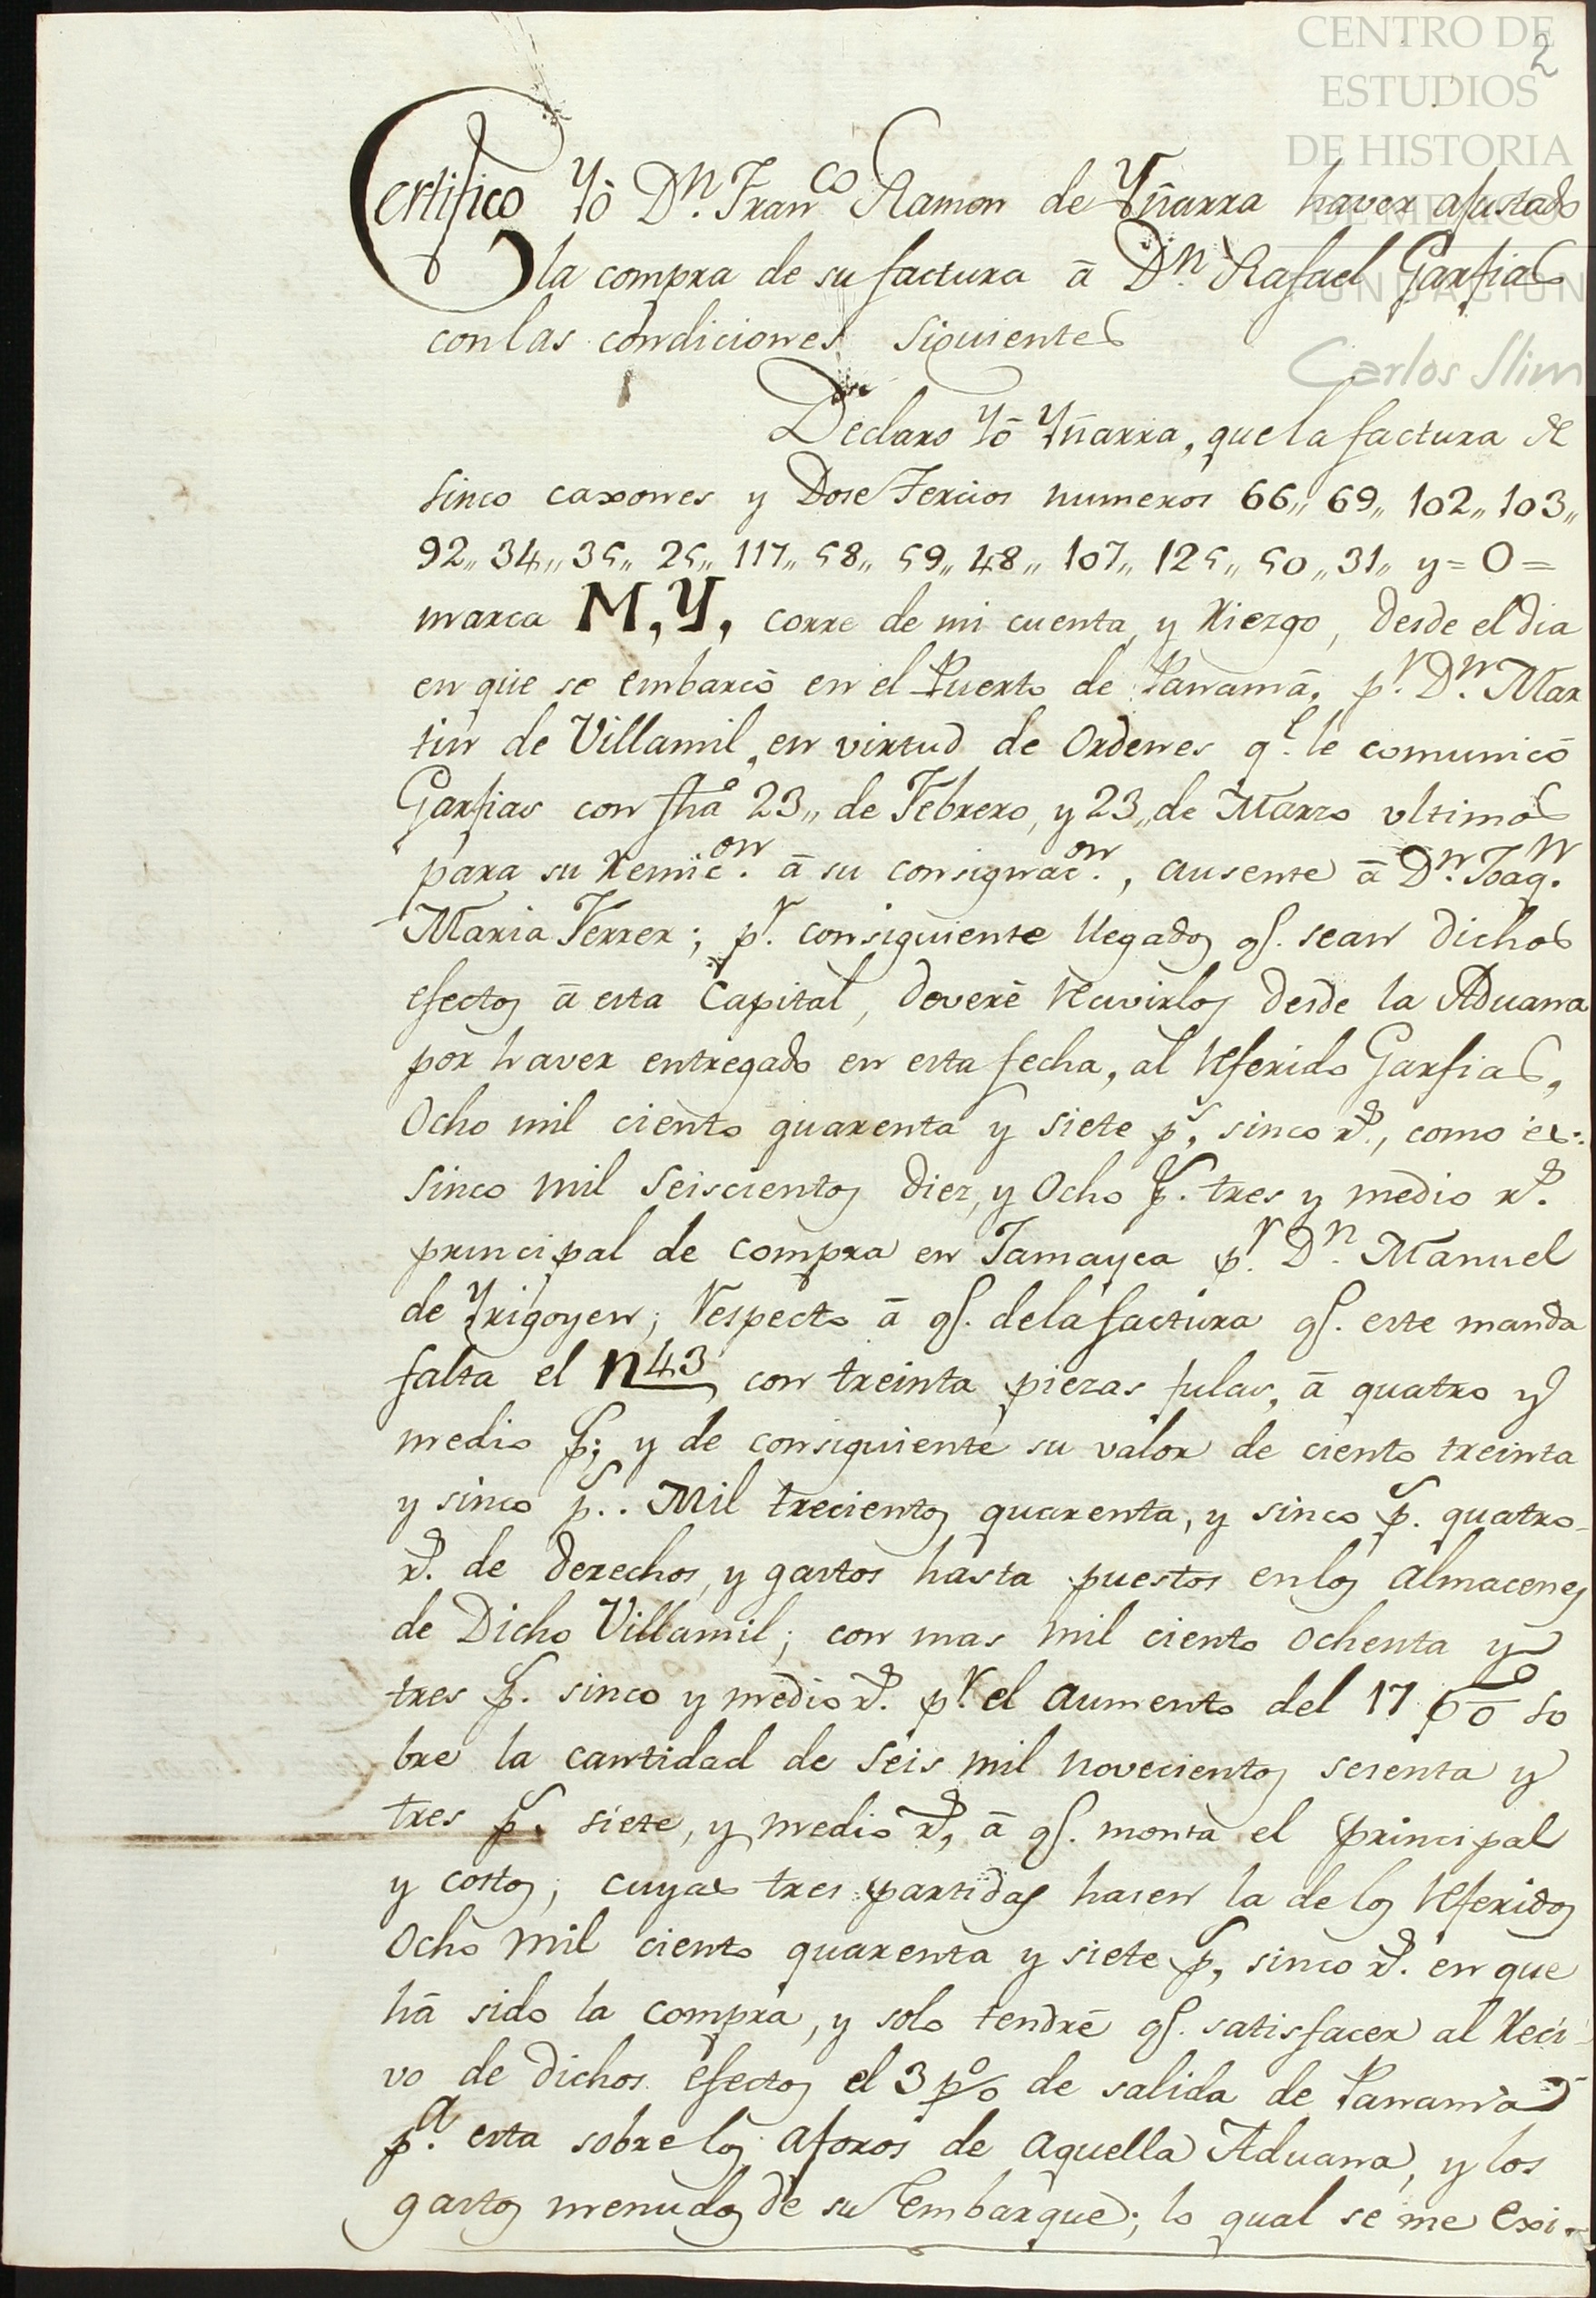 CENTRO DE
ESTUDIOS
DE HISTORIA
DE MEXICO
FUNDACION
Carlos Slim
2
Certifico Yō Dn. Franco Ramon de Yñarra haver ajustado
la compra de su factura ā Dn. Rafael Garfias
con las condiciones siguientes
Declaro Yō Yñarra, que la factura de
sinco caxones y Dose Tercios numeros 66,, 69,, 102,, 103,,
92,, 34,, 35,, 25,, 117,, 58,, 59,, 48,, 107,, 125,, 50,, 31,, y = O =
marca M, Y, corre de mi cuenta, y riezgo, desde el dia
en que se embarcō en el Puerto de Panamā, pr. Dn. Mar
tin de Villamil, en virtud de Ordenes qe. le comunicō
Garfias con fha 23,, de Febrero, y 23,, de Marzo ultimos
para su remicon. ā su consignacon., ausente ā Dn. Joaqn.
Maria Ferrer; pr. consiguiente llegados qe. sean dichos
efectos ā esta Capital, deverē recivirlos desde la Aduana
por haver entregado en esta fecha, al referido Garfias,
Ocho mil ciento quarenta y siete ps, sinco rs., como es:
sinco mil seiscientos diez, y ocho ps. tres y medio rs.
principal de compra en Jamayca pr. Dn. Manuel
de Yrigoyen; respecto ā qe. de la factura qe. este manda
falta el n 43 con treinta piezas sulas, ā quatro y
medio ps; y de consiguiente su valor de ciento treinta
y sinco ps.. Mil trecientos quarenta, y sinco ps. quatro
rs. de derechos, y gastos hasta puestos en los almacenes
de Dicho Villamil; con mas mil ciento ochenta y
tres ps. sinco y medio rs. pr. el aumento del 17 p% so
bre la cantidad de seis mil novecientos sesenta y
tres ps. siete, y medio rs, ā qe. monta el principal
y costos; cuyas tres partidas hasen la de los referidos
Ocho mil ciento quarenta y siete ps, sinco rs. en que
hā sido la compra, y solo tendrē qe. satisfacer al reci
vo de dichos efectos el 3 p% de salida de Panamā
pa. esta sobre los aforos de aquella Aduana, y los
gastos menudos de su Embarque; lo qual se me exi-